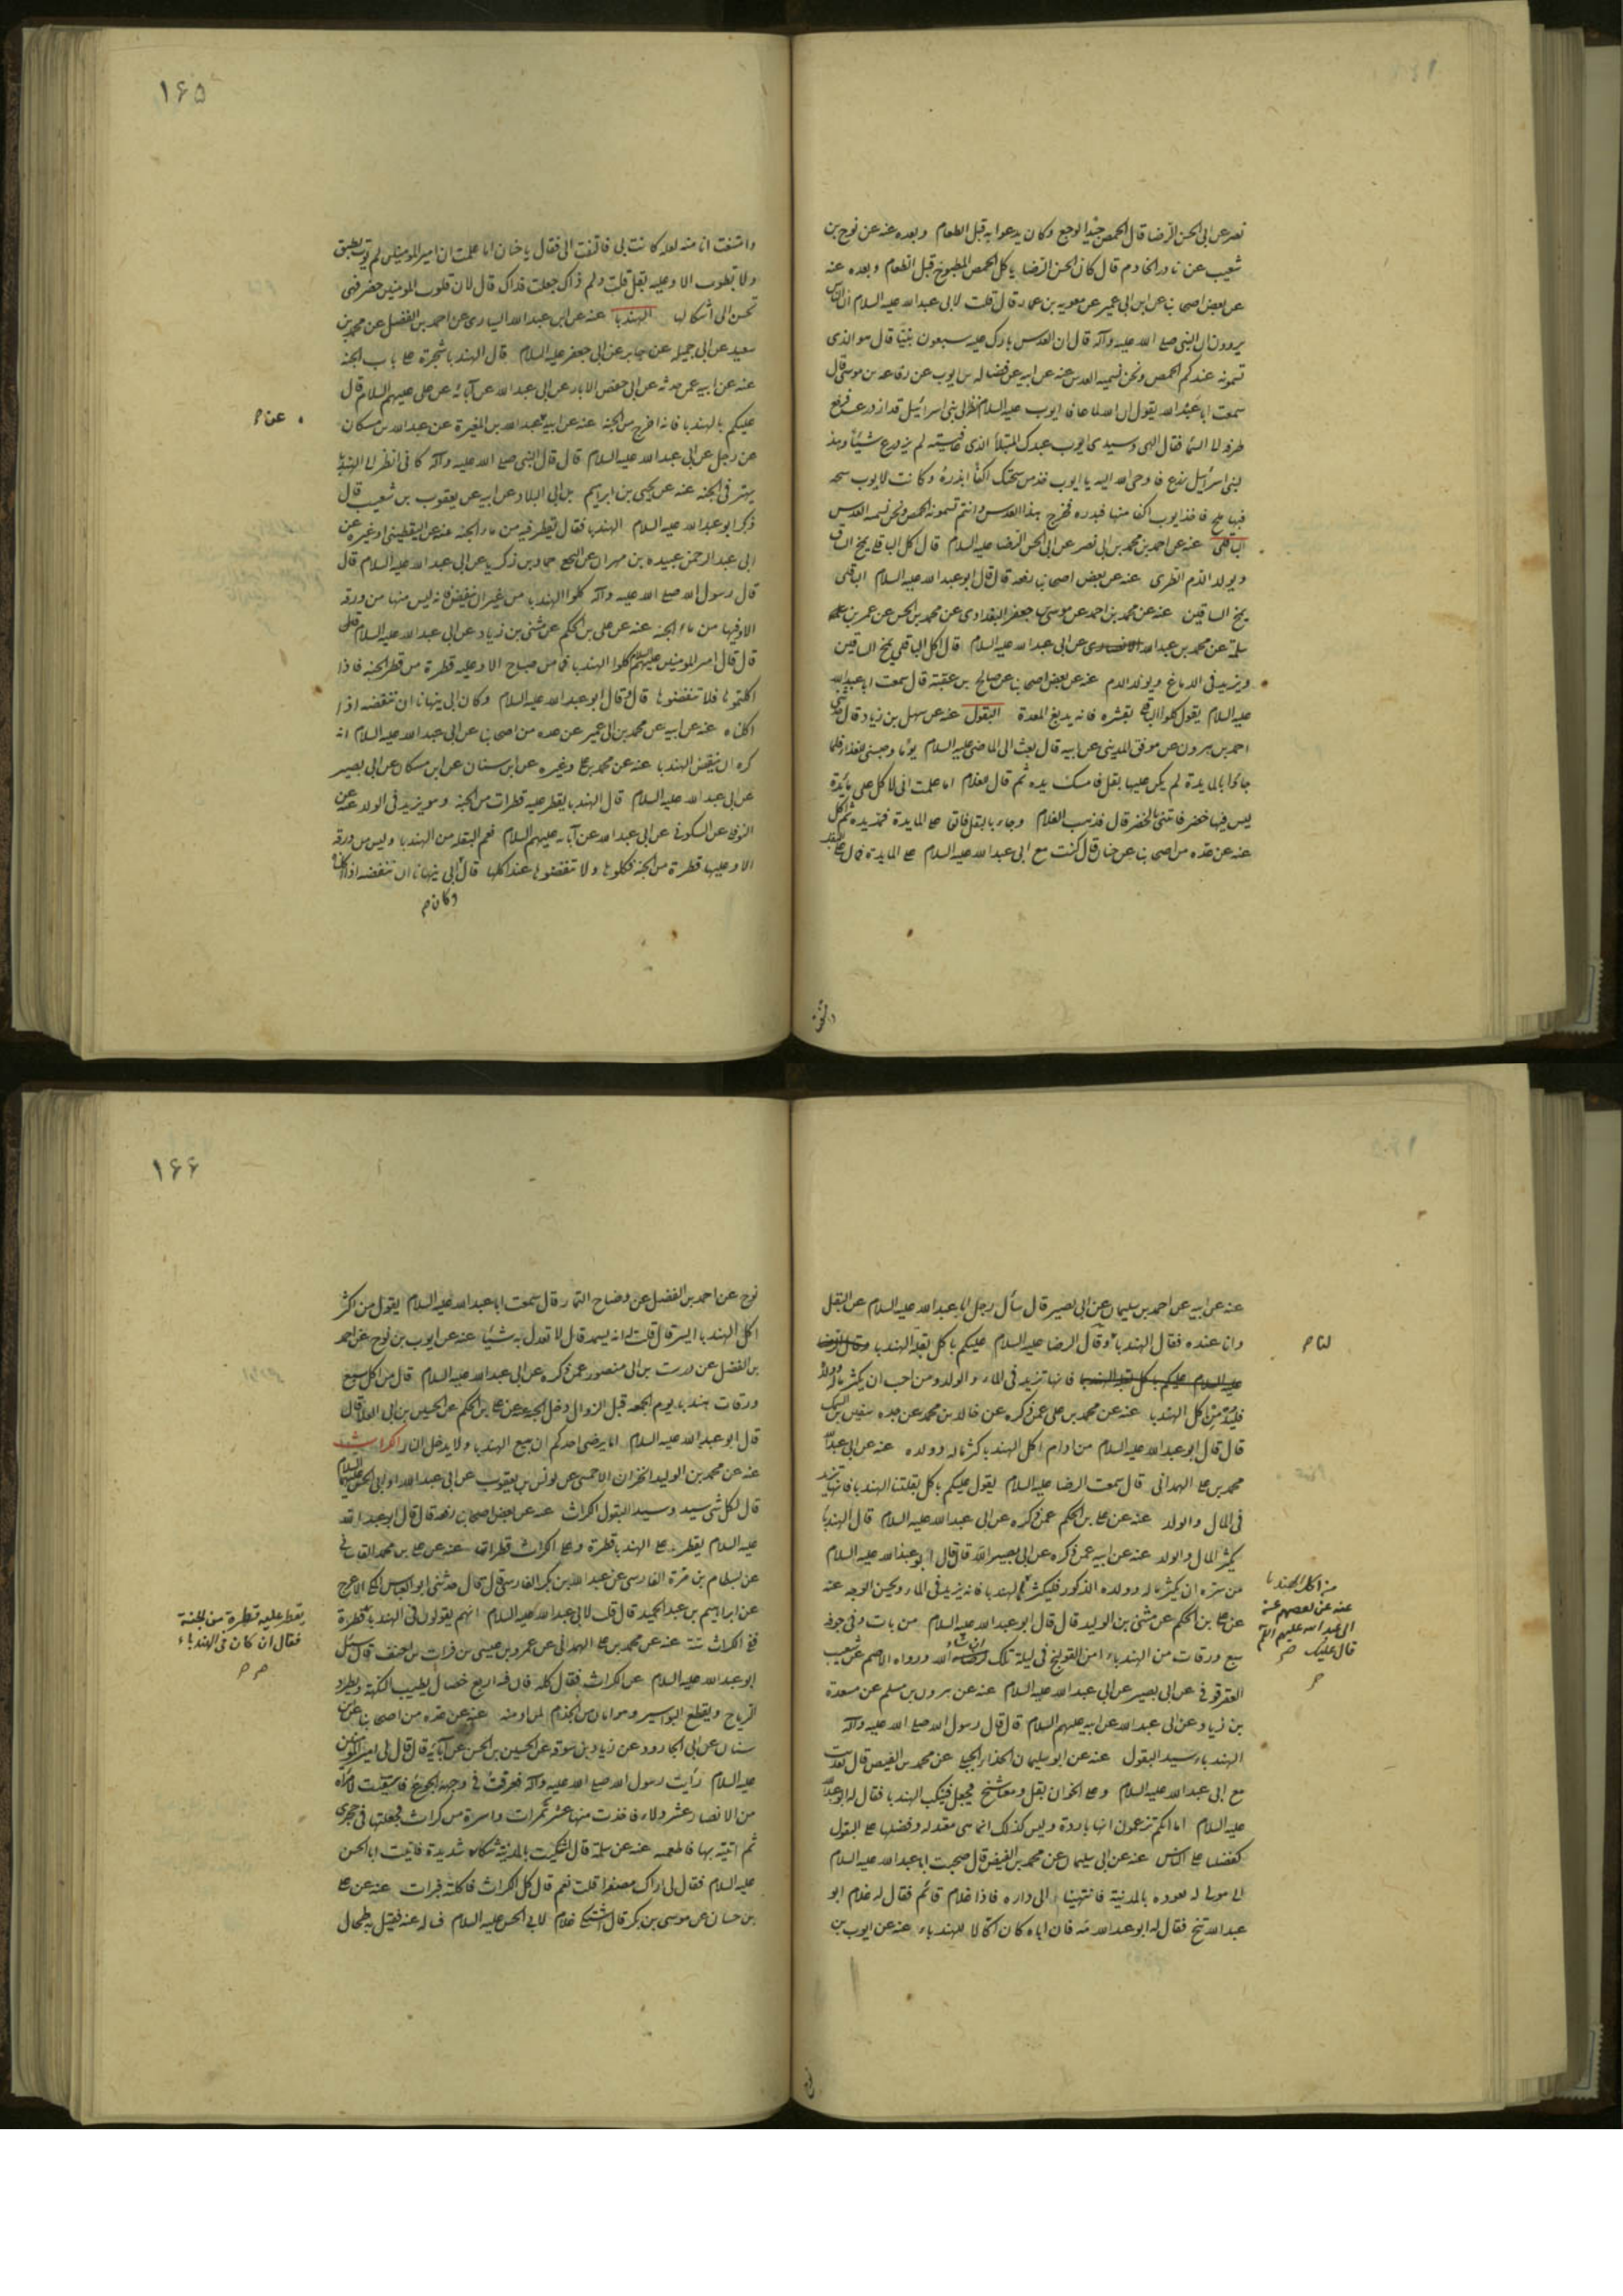 نصر عن ابى الحسن الرضا قال الحمص جيد لوجع وكان يدعوا به قبل الطعام وبعده عنه عن نوح بن
شعيب عن نادر الخادم قال كان الحسن الرضا ياكل الحمص المطبوخ قبل الطعام وبعده عنه
عن بعض اصحابنا عن ابن ابى عمير عن معويه بن عمار قال قلت لابى عبد الله عليه السلام ان الناس
يروون ان النبى صلع الله عليه وآله قال ان العدس بارك عليه سبعون نبيّا قال هو الذى
تسمونه عندكم الحمص ونحن نسميه العدس عنه عن ابيه عن فضاله بن ايوب عن رفاعه بن موسى قال
سمعت ابا عبد الله يقول ان الله لما عافا ايوب عليه السلام نظر الى بنى اسرائيل قد ازدرعت فرفع
طرفه لا السما فقال الهى وسيدى ايوب عبدك المبتلا الذى عافيته لم يزدرع شيئا وهذا
لبنى اسرائيل زرع فاوحى الله اليه يا ايوب خذ من سبحتك اكفا ابذره وكانت لايوب سبحه
فيها ملح فاخذ ايوب اكفا منها فبدره فخرج هذا العدس وانتم تسمونه الحمص ونحن نسميه العدس
الباقلى عنه عن احمد بن محمد بن ابى نصر عن ابى الحسن الرضا عليه السلام قال اكل الباقلى يمخ الساق
ويولد الدم الطرى عنه عن بعض اصحابنا رفعه قال قال ابو عبد الله عليه السلام الباقلى
يمخ الساقين عنه عن محمد بن احمد عن موسى بن جعفر البغدادى عن محمد بن الحسن عن عمر بن
سلمة عن محمد بن عبد الله عن ابى عبد الله عليه السلام قال اكل الباقلى يمخ الساقين
ويزيد فى الدماغ ويولد الدم عنه عن بعض اصحابنا عن صالح بن عقبة قال سمعت ابا عبد الله
عليه السلام يقول كلوا الباقلى بقشره فانه يدبغ المعدة البقول عنه عن سهل بن زياد قال حدثنى
احمد بن هرون عن موفق المدينى عن ابيه قال بعث الى الماضى عليه السلام يوما وحبسنى للغداء فلما
جاؤا بالمايدة لم يكن عليها بقل فامسك يده ثم قال لغلام اما علمت انى لا اكل على مائدة
ليس فيها خضر فاتنى بالخضر قال فذهب الغلام وجاء بالبقل فالقى ع المايدة فمد يده ثم اكل
عنه عن عده من اصحابنا عن حنان قال كنت مع ابى عبد الله عليه السلام ع المايدة فمال ع البقل
١۶۵
وامتنعت انا منه لعله كانت بى فالتفت الى فقال يا حنان اما علمت ان امير المومنين لم يؤت بطبق
ولا بطون الا وعليه بقل قلت ولم ذاك جعلت فداك قال لان قلوب المومنين خضر فهى
تحن الى اشكالها الهندبا عنه عن ابى عبد الله السيارى عن احمد بن الفضل عن محمد بن
سعيد عن ابى جميله عن جابر عن ابى جعفر عليه السلام قال الهندبا شجرة ع باب الجنه
عنه عن ابيه عمن حدثه عن ابى حفص الابار عن ابى عبد الله عن آبائه عن على عليهم السلام قال
عليكم بالهندبا فانه اخرج من الجنه عنه عن ابيه عبد الله بن المغيرة عن عبد الله بن مسكان
عن م
عن رجل عن ابى عبد الله عليه السلام قال قال النبى صلع الله عليه وآله كانى انظر الى الهندبا
يهتز فى الجنه عنه عن يحيى بن ابراهيم بن ابى البلاد عن ابيه عن يعقوب بن شعيب قال
ذكر ابو عبد الله عليه السلام الهندبا فقال يقطر فيه من ماء الجنه عنه عن اليقطينى او غيره عن
ابى عبد الرحمن عبيده بن مهران عن حماد بن زكريا عن ابى عبد الله عليه السلام قال
قال رسول الله صلع الله عليه وآله كلوا الهندبا من غير ان ينفض فانه ليس منها من ورقه
الا وفيها من ماء الجنه عنه عن على بن الحكم عن مثنى بن زياد عن ابى عبد الله عليه السلام
قال قال امير المومنين عليه السلام كلوا الهندبا فما من صباح الا وعليه قطرة من قطر الجنه فاذا
اكلتموها فلا تنفضوها قال وقال ابو عبد الله عليه السلام وكان ابى ينهانا ان ننفضه اذا
اكلناه عنه عن ابيه عن محمد بن ابى عمير عن عده من اصحابنا عن ابى عبد الله عليه السلام انه
كره ان ينفض الهندبا عنه عن محمد بن ع وغيره عن ابن سنان عن ابن مسكان عن ابى بصير
عن ابى عبد الله عليه السلام قال الهندبا يقطر عليه قطرات من الجنة وهو يزيد فى الولد عنه عن
النوفلى عن السكونى عن ابى عبد الله عن آبائه عليهم السلام نعم البقله من الهندبا وليس من ورقه
الا وعليها قطرة من الجنه فكلوها ولا تنفضوها عند اكلها قال ابى ينهانا ان ننفضه اذا اكلناه
وكان م
عنه عن ابيه عن احمد بن سليمان عن ابى بصير قال سأل رجل ابا عبد الله عليه السلام عن البقل
وانا عنده فقال الهندباء وقال الرضا عليه السلام عليكم باكل بقلة الهندبا وقال الرضا
لنا م
عليه السلام عليكم باكل بقلة الهندبا فانها تزيد فى الماء والولد ومن احب ان يكثر ماله وولده
فليدمن اكل الهندبا عنه عن محمد بن على عمن ذكره عن خالد بن محمد عن جده سفين بن السمط
قال قال ابو عبد الله عليه السلام من ادام اكل الهندبا كثر ماله وولده عنه عن ابى عبد الله
محمد بن ع الهمدانى قال سمعت الرضا عليه السلام يقول عليكم باكل بقلتنا الهندبا فانها تزيد
فى المال والولد عنه عن ع بن الحكم عمن ذكره عن ابى عبد الله عليه السلام قال الهندبا
يكثر المال والولد عنه عن ابيه عمن ذكره عن ابى بصير قال قال ابو عبد الله عليه السلام
من سره ان يكثر ماله وولده الذكور فليكثر الهندبا فانه يزيد فى الماء ويحسن الوجه عنه
من اكل الهندبا
عنه عن بعضهم عنه
ابى عبد الله عليه السلم
قال عليك
عن ع بن الحكم عن مثنى بن الوليد قال قال ابو عبد الله عليه السلام من بات وفى جوفه
سبع ورقات من الهندباء امن القولنج فى ليلة تلك ان شاء الله ورواه الاصم عن شعيب
العقرقوفى عن ابى بصير عن ابى عبد الله عليه السلام عنه عن هرون بن مسلم عن مسعدة
بن زياد عن ابى عبد الله عن ابيه عليهم السلام قال قال رسول الله صلع الله عليه وآله
الهندباء سيد البقول عنه عن ابو سليمان الحذاء الجبلى عن محمد بن الفيض قال تغديت
مع ابى عبد الله عليه السلام وع الخوان بقل ومعنا شيخ فجعل يتنكب الهندبا فقال له ابو عبد الله
عليه السلام اما انكم تزعمون انها باردة وليس كذلك انما هى معتدله وفضلها ع البقول
كفضلنا ع الناس عنه عن ابى سليمان عن محمد بن الفيض قال صحبت ابا عبد الله عليه السلام
الى مولى له يعوده بالمدينة فانتهينا الى داره فاذا غلام قائم فقال له غلام ابو
عبد الله تنح فقال له ابو عبد الله مه فان اباه كان اكالا للهندباء عنه عن ايوب بن
١۶۶
نوح عن احمد بن الفضل عن وضاح التمار قال سمعت ابا عبد الله عليه السلام يقول من اكثر
اكل الهندبا ايسر قال قلت له انه يسمد قال لا تعدل به شيئا عنه عن ايوب بن نوح عن احمد
بن الفضل عن درست بن ابى منصور عمن ذكره عن ابى عبد الله عليه السلام قال من اكل سبع
ورقات هندباء يوم الجمعه قبل الزوال دخل الجنه عنه عن ع بن الحكم عن الحسين بن ابى العلا قال
قال ابو عبد الله عليه السلام اما يرضى احدكم ان يشبع الهندباء ولا يدخل النار الكراث
عنه عن محمد بن الوليد الخزان الاحمسى عن يونس بن يعقوب عن ابى عبد الله او ابى الحسن عليهما السلام
قال لكل شى سيد وسيد البقول الكراث عنه عن بعض اصحابنا رفعه قال قال ابو عبد الله
عليه السلام يقطر ع الهندبا قطرة وع الكراث قطرات عنه عن ع بن محمد القاسانى
عن بسطام بن مرة الفارسى عن عبد الله بن بكر الفارسى قال حدثنى ابو العباس المكى الاعرج
عن ابراهيم بن عبد الحميد قال قلت لابى عبد الله عليه السلام انهم يقولون فى الهندباء قطرة
يقطر عليه قطرة من الجنة
فقال ان كان فى الهندباء
فى الكراث ستة عنه عن محمد بن ع الهمدانى عن عمرو بن عيسى عن فرات بن احنف قال سئل
ابو عبد الله عليه السلام عن الكراث فقال كله فان فيه اربع خصال يطيب النكهة ويطرد
الرياح ويقطع البواسير وهو امان من الجذام لمن ادمنه عنه عن عده من اصحابنا عن
سنان عن ابى الجارود عن زياد بن سوقه عن الحسين بن الحسن عن آبائه قال قال لى امير المومنين
عليه السلام رأيت رسول الله صلع الله عليه وآله فعرفت فى وجهه الجوع فاستقيت لامرأه
من الانصار عشر دلاء فاخذت منها عشر تمرات واسرة من كراث فجعلتها فى حجرى
ثم اتيته بها فاطعمه عنه عن سلمة قال اشتكيت بالمدينة شكاة شديدة فاتيت ابا الحسن
عليه السلام فقال لى اراك مصفرا قلت نعم قال كل الكراث فاكلته فبرات عنه عن ع
بن حسان عن موسى بن بكر قال اشتكى غلام لابى الحسن عليه السلام فسال عنه فقيل به طحال